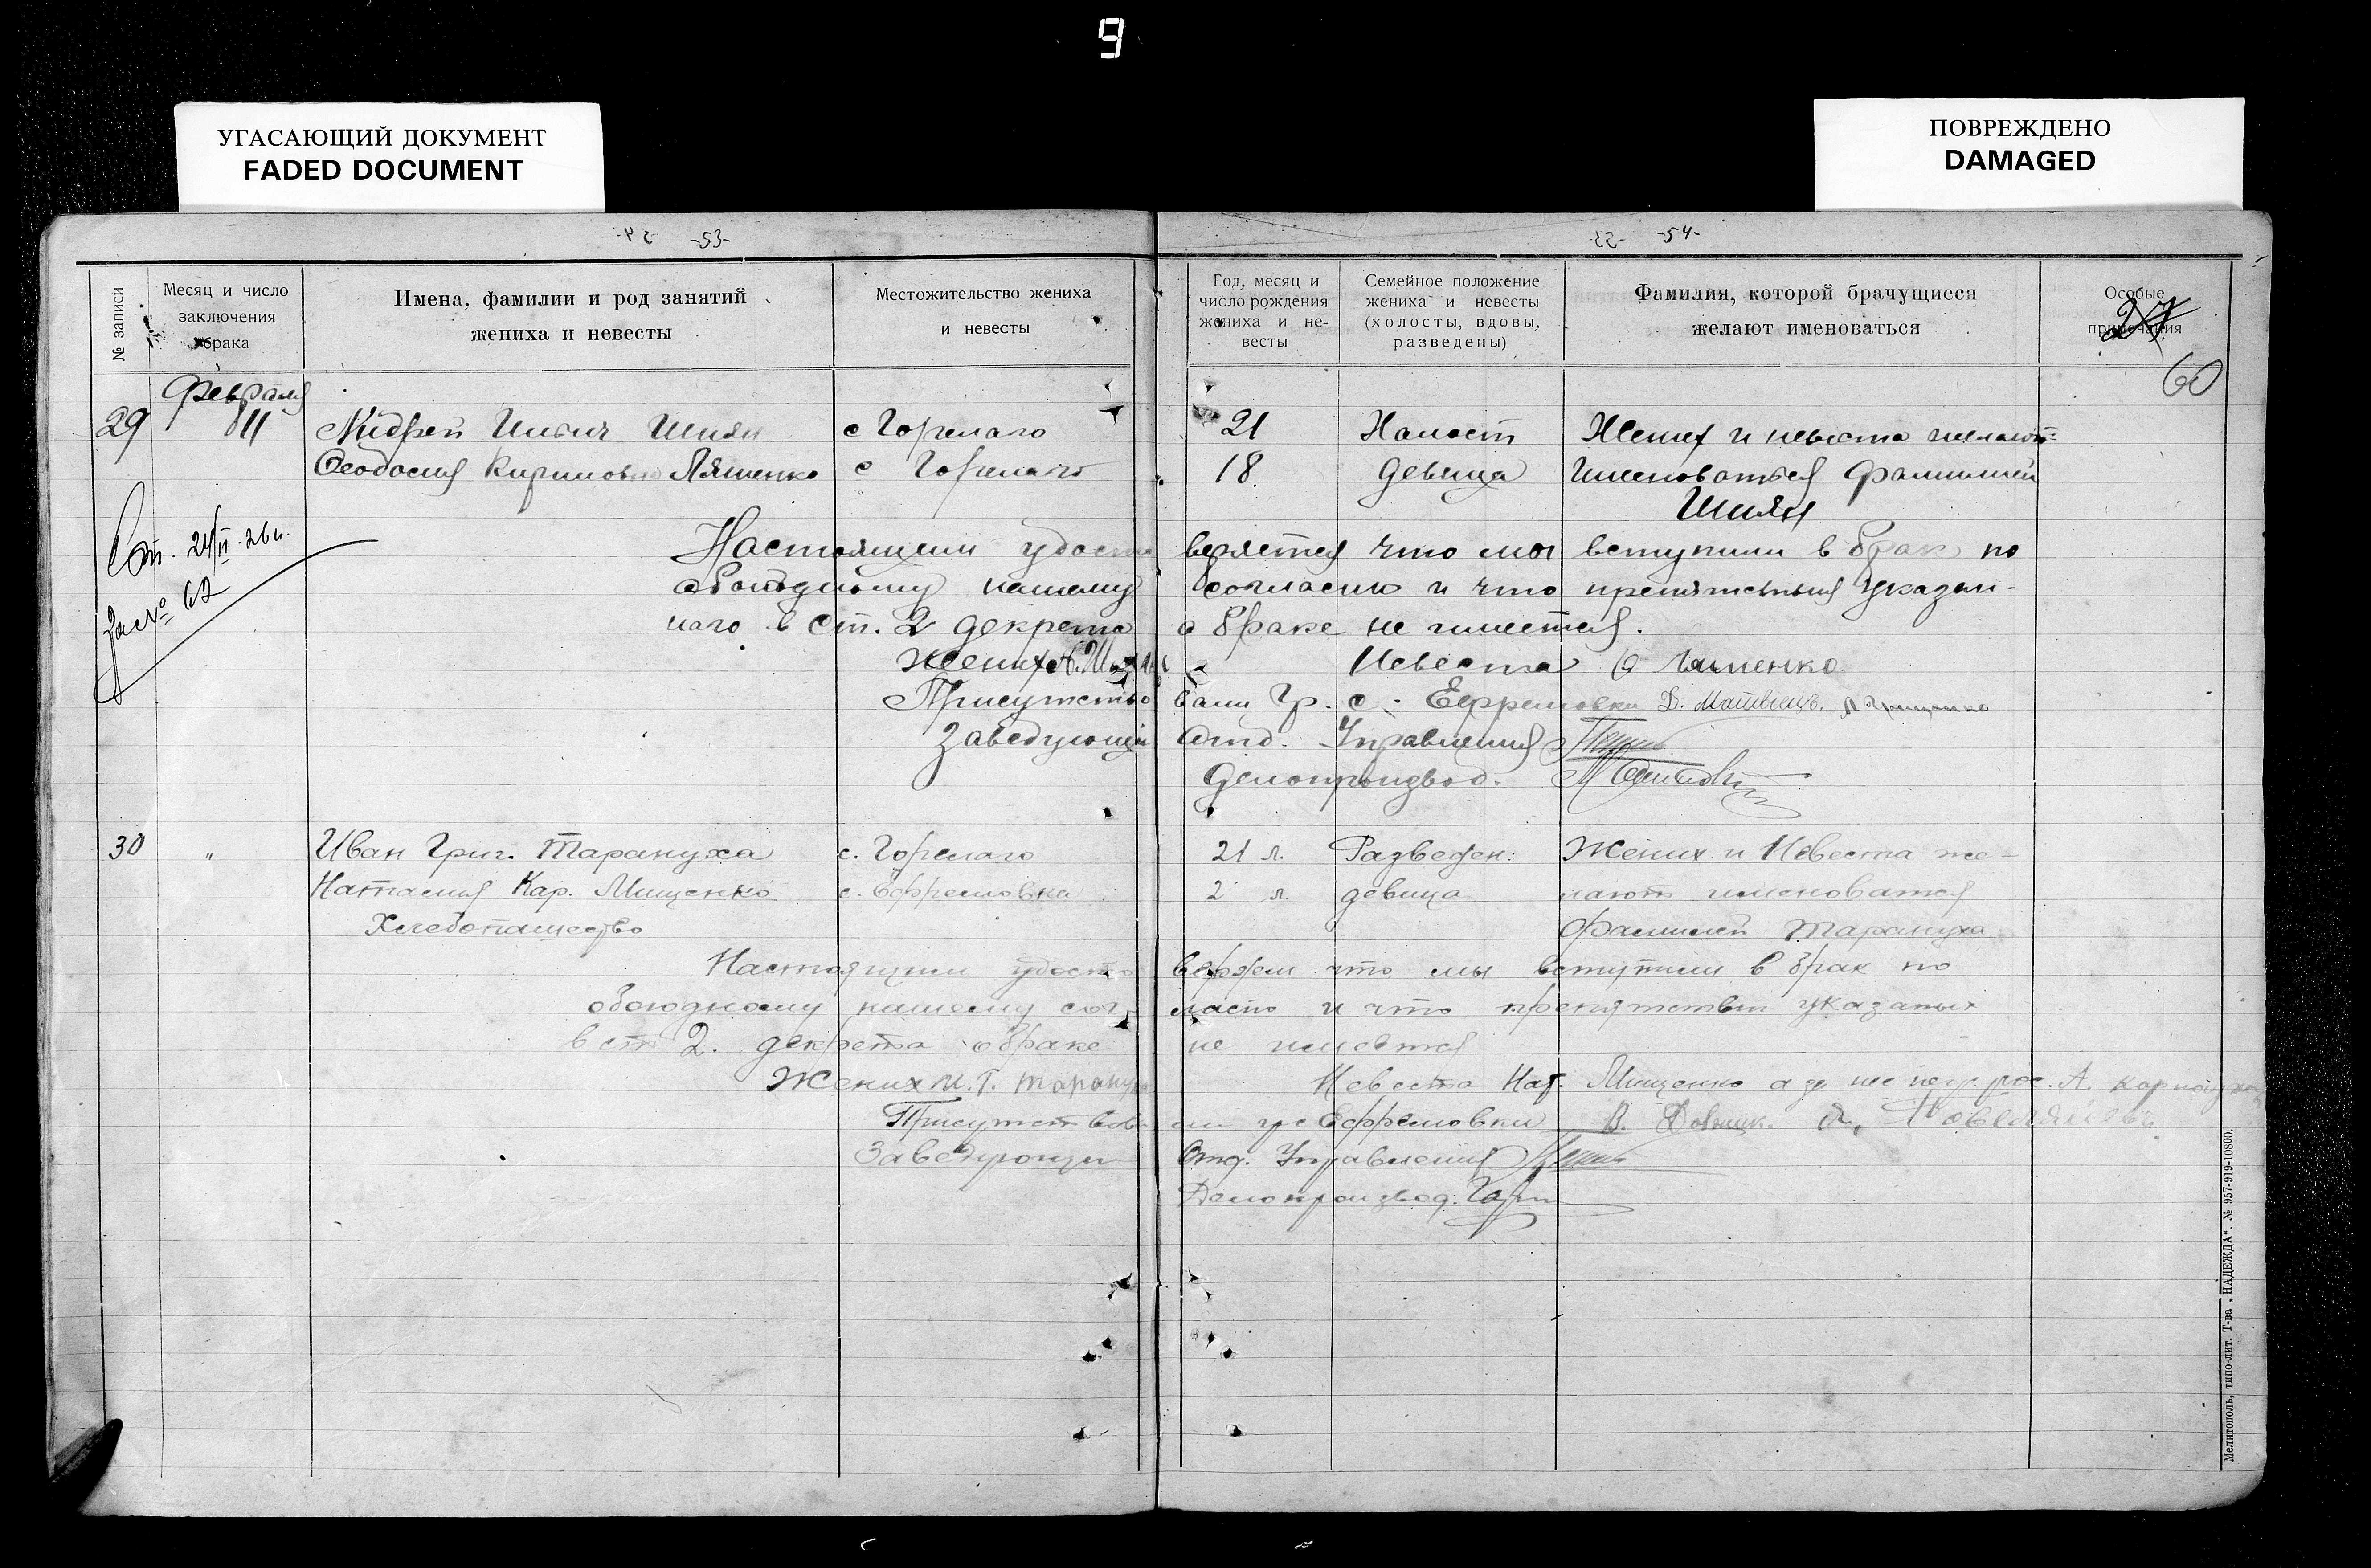 9
УГАСАЮЩИЙ ДОКУМЕНТ
FADED DOCUMENT
ПОВРЕЖДЕНО
DAMAGED
-53-
-54-
№ записи
Месяц и число
заключения
брака
Имена, фамилии и род занятий
жениха и невесты
Местожительство жениха
и невесты
Год, месяц и
число рождения
жениха и не-
весты
Семейное положение
жениха и невесты
(холосты, вдовы,
разведены)
Фамилия, которой брачущиеся
желают именоваться
Особые
примечания
27
60
Февраля
29 11 Андрей Ильич Шиян с Горелаго 21 Холост Жених и невеста желают
Феодосия Кириловна Ляшенко с Горелаго 18 девица именоваться фамилией
Шиян
24/II-26 г.
№ 62
Настоящем удосто веряется что мы вступили в брак по
обоюдному нашему согласию и что препятствия указан-
наго в Ст. 2 декрета о браке не имеется.
Жених А. Шиян Невеста Ф Ляшенко
Присутство вали Гр. с. Ефремовки
Заведующий Отд. Управления
Делопроизвод.
30 " Иван Григ. Тарануха с. Горелаго 21 л. Разведен. Жених и Невеста же-
Наталия Кар. Мищенко с. Ефремовка 2 л. девица лают именоватся
Хлебопашество фамилией Тарануха
Настоящим удосто веряем что мы вступили в брак по
обоюдному нашему сог ласию и что препятствий указаных
в ст 2. декрета о браке не имеется
Жених И. Г. Тарануха Невеста Нат. Мищенко
Присутствова ли гр с Ефремовки
Заведующий Отд. Управления
Делопроизвод.
Мелитополь, типо-лит. Т-ва „НАДЕЖДА“. № 957-919-10800.